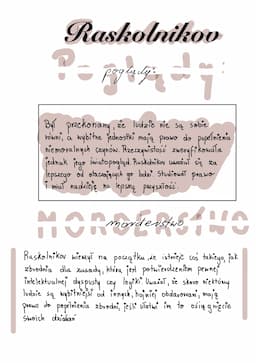 Raskolnikov
Poglądy:
poglądy:
Był przekonany, że ludzie nie są sobie
równi, a wybitne jednostki mają prawo do popełnienia
niemoralnych czynów. Rzeczywistość zweryfikowała
jednak jego światopogląd. Raskolnikow uważał się za
lepszego od otaczających go ludzi. Studiował prawo
i miał nadzieję na lepszą przyszłość.
MORDERSTWO
morderstwo
Raskolnikov wierzył na początku że istnieje coś takiego, jak
zbrodnia dla zasady, która jest potwierdzeniem pewnej
intelektualnej dysputy czy logiki. Uważał, że skoro niektórzy
ludzie są wybitniejsi od innych, hojniej obdarowani, mają
prawo do popełnienia zbrodni, jeśli ułatwi im to osiągnięcie
swoich działań